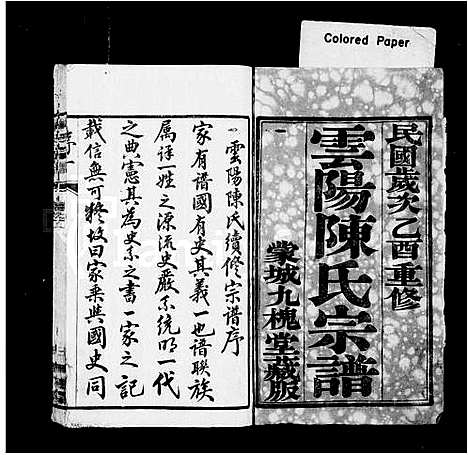 Colored Paper
民國歲次乙酉重修
雲陽陳氏宗譜
蒙城九槐堂藏版
雲陽陳氏續修宗譜序
家有譜國有史其義一也譜聯族
屬詳姓之源流史嚴系統明一代
之典憲其為史系之書一家之記
載信無可移故曰家乘與國史同